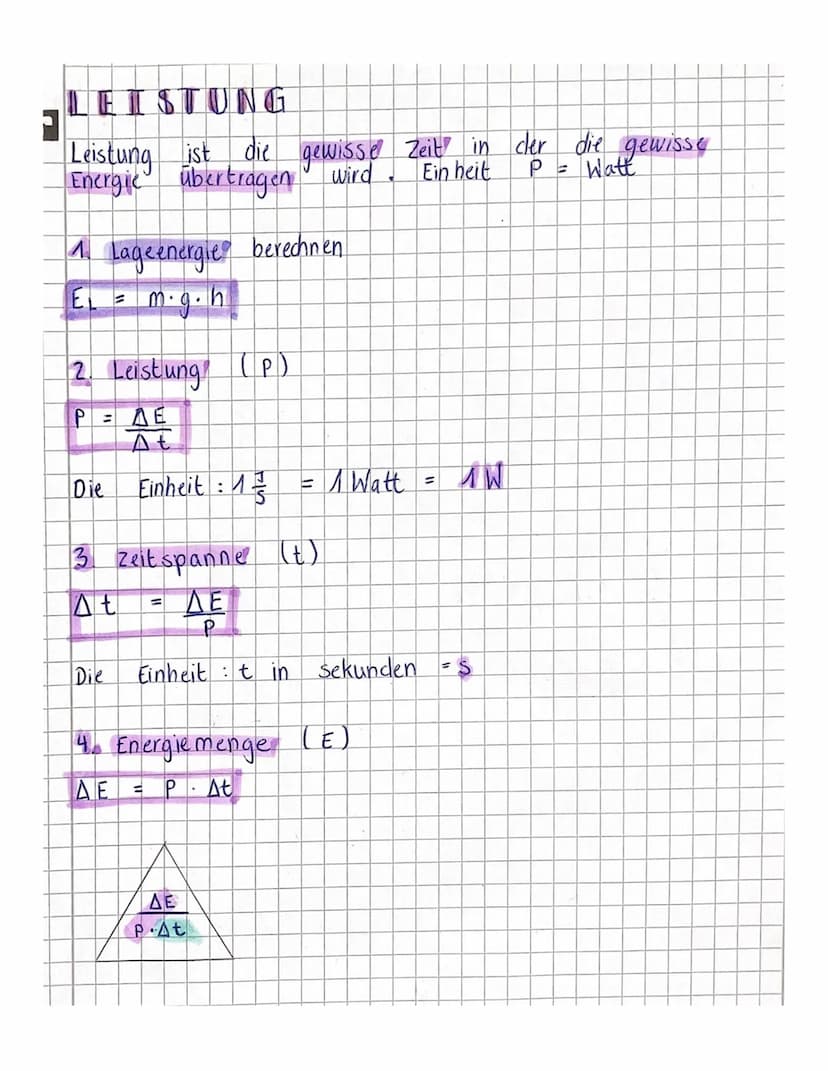 LEISTUNG
Leistung ist die gewisse Zeit in der die gewisse
Energie übertragen wird. Einheit P = Watt
1. Lageenergie berechnen
EL = m·g·h
2. Leistung (P)
P = ΔE/Δt
Die Einheit : 1 J/s = 1 Watt = 1 W
3. Zeitspanne (t)
Δt = ΔE/P
Die Einheit : t in sekunden = s
4. Energiemenge (E)
ΔE = P · Δt
ΔE
P·Δt